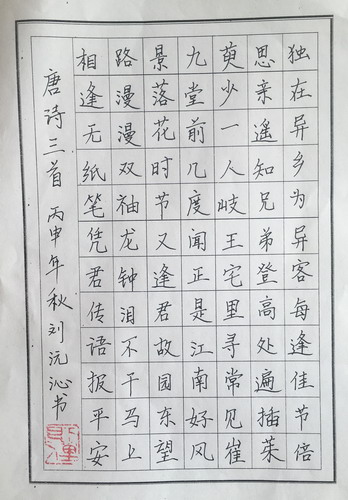 独在异乡为异客每逢佳节倍
思亲遥知兄弟登高处遍插茱
萸少一人岐王宅里寻常见崔
九堂前几度闻正是江南好风
景落花时节又逢君故园东望
路漫漫双袖龙钟泪不干马上
相逢无纸笔凭君传语报平安
唐诗三首 丙申年秋刘沅沁书